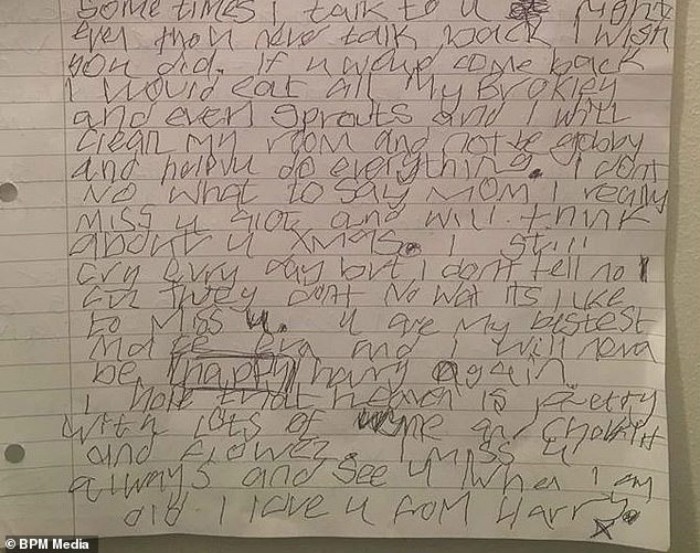 some times i talk to u night
even thou never talk back i wish
you did. if u woud come back
I would eat all my Brokley
and even sprouts and I will
clean my room and not be gobby
and help u do everything. i dont
no what to say mom I really
miss u alot and will think
about u xmas. I still
cry evry day but i dont tell no 1
cuz they dont no wat its like
to miss u. u are my bestest
mate eva and I will neva
be happy harry again
i hope that heaven is pretty
with lots of wine an choklit
and flowez. I miss u
always and see u when I am
did I love u from Harry x
© BPM Media